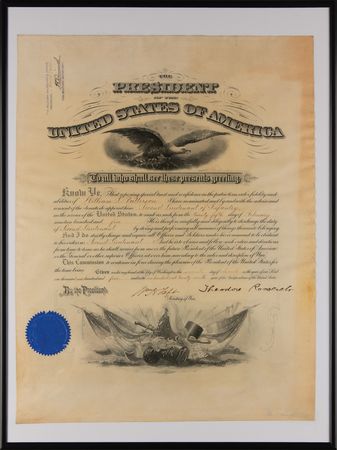 THE
PRESIDENT
OF THE
UNITED STATES OF AMERICA
To all who shall see these presents greeting:
Know Ye, That reposing special trust and confidence in the patriotism, valor, fidelity and
abilities of William I have nominated and by and with the advice and
consent of the Senate do appoint him Second Lieutenant of Infantry
in the service of the United States: to rank as such from the day of February
nineteen hundred and He is therefore carefully and diligently to discharge the duty
of Second Lieutenant by doing and performing all manner of things thereunto belonging.
And I do strictly charge and require all Officers and Soldiers under his command to be obedient
to his orders as Second Lieutenant And he is to observe and follow such orders and directions
from time to time as he shall receive from me or the future President of the United States of America
or the General or other Superior Officers set over him according to the rules and discipline of War.
This Commission to continue in force during the pleasure of the President of the United States for
the time being.
Given under my hand at the City of Washington this day of in the year of our Lord
one thousand nine hundred and and in the one hundred and year of the Independence of the United States.
By the President:
Wm H Taft Theodore Roosevelt
Secretary of War.